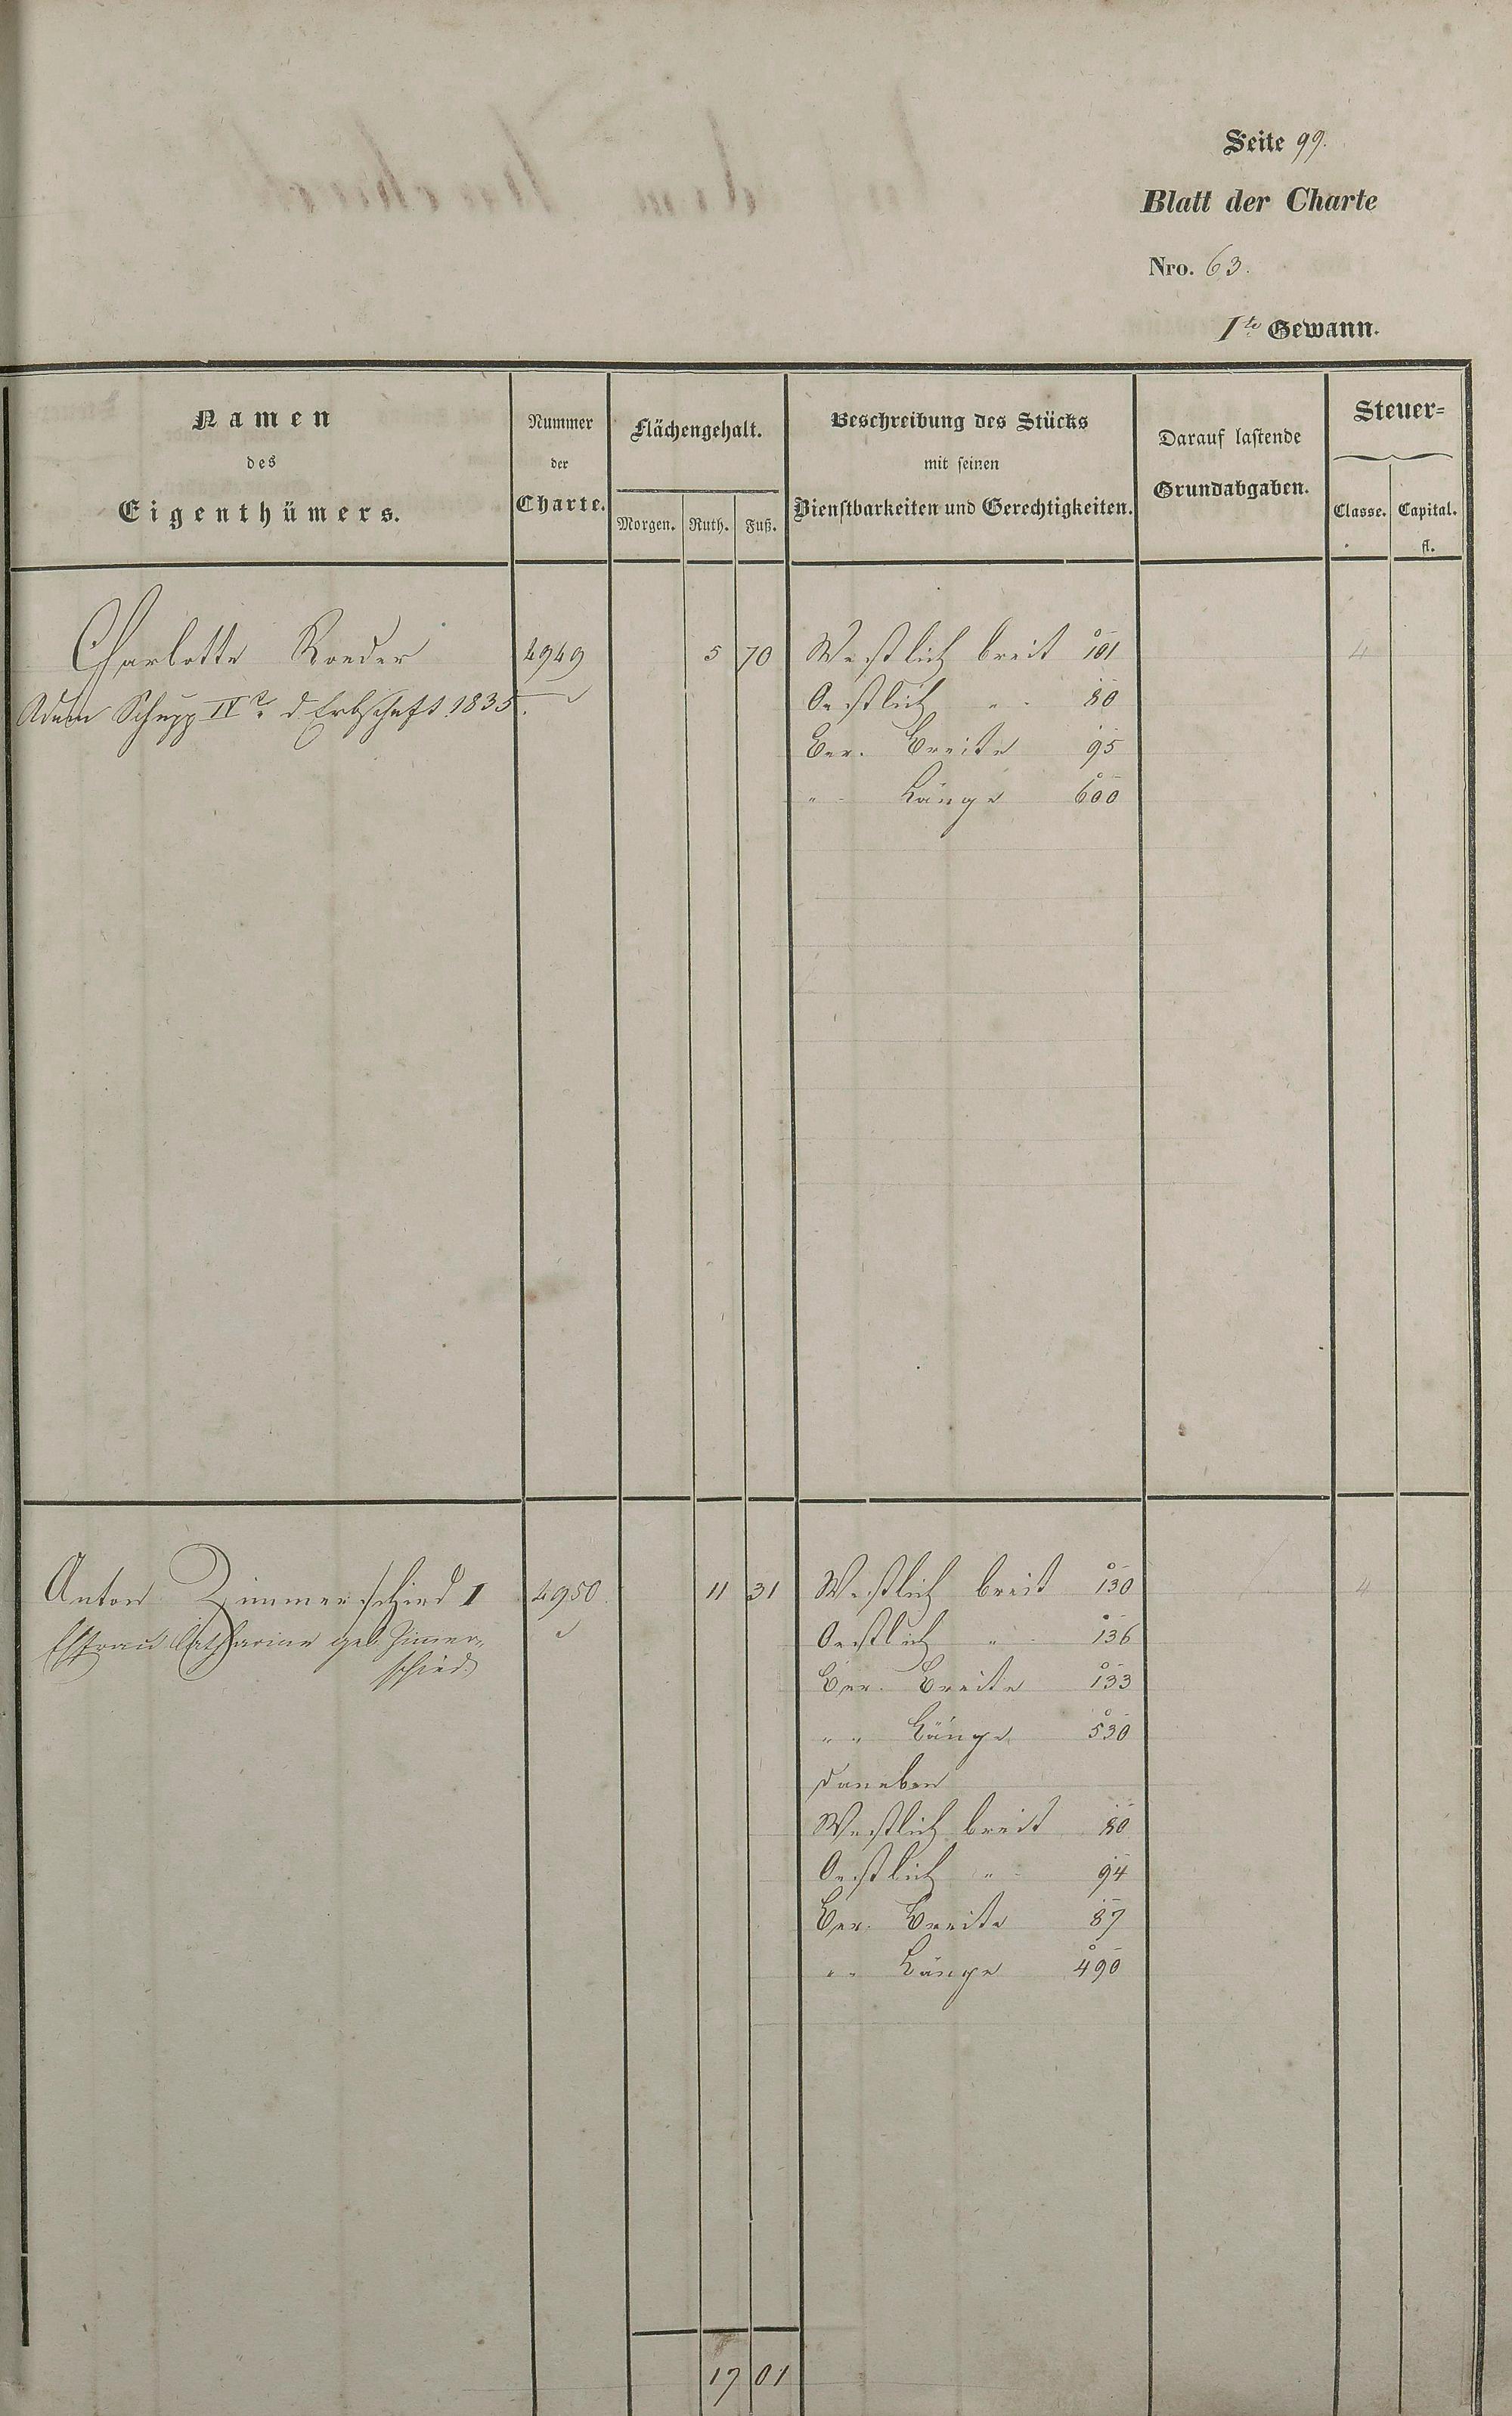 Seite 99.
Blatt der Charte
Nro. 63.
1te Gewann.
Namen
des
Eigenthümers.
Nummer
der
Charte.
Flächengehalt.
Morgen. Ruth. Fuß.
Beschreibung des Stücks
mit seinen
Dienstbarkeiten und Gerechtigkeiten.
Darauf lastende
Grundabgaben.
Steuer-
Classe. Capital.
fl.
Charlotte Roeder 4949 5 70 Westlich breit 101 4
Adam Schupp IVr d Erbschaft 1835. Oestlich " 80
Ber. Breite 95
" Länge 600
Anton Zimmerschied I 4950. 11 31 Westlich breit 130 4
Ehfrau Catharine geb. Zimmer- Oestlich " 136
schied Ber. Breite 133
" " Länge 530
daneben
Westlich breit 80
Oestlich " 94
Ber. Breite 87
" " Länge 490
17 01